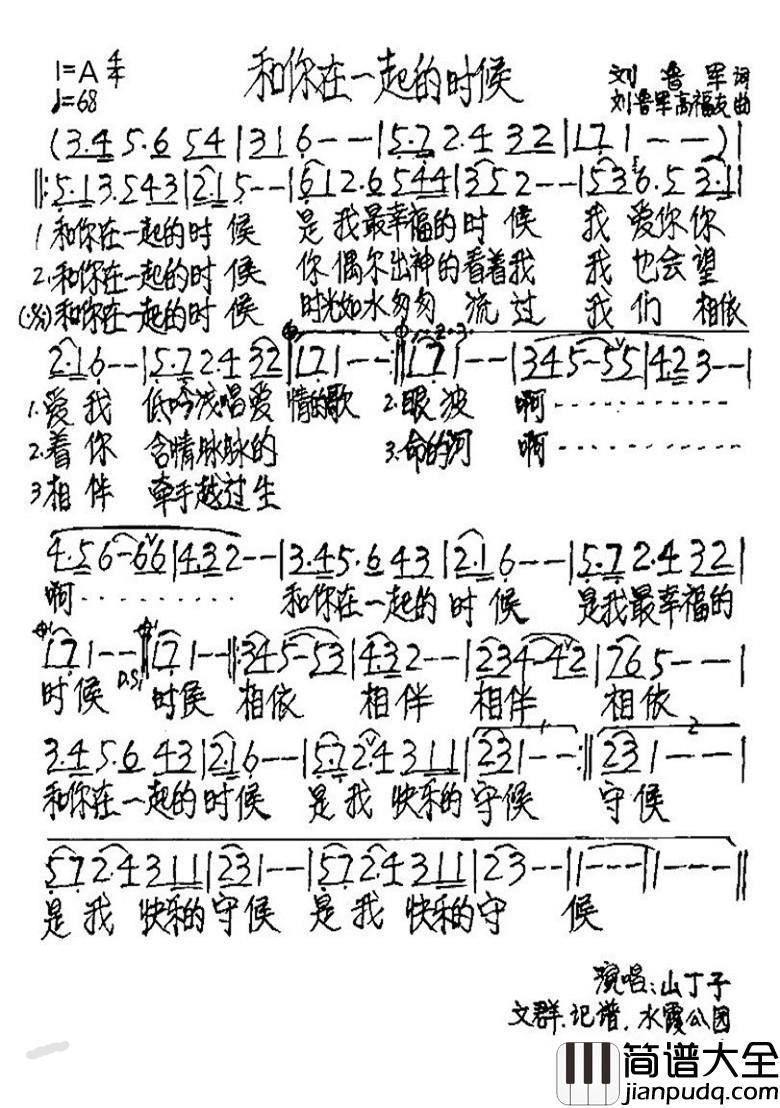 1=A 4/4
和你在一起的时候
刘鲁军 词
♩=68
刘鲁军高福友曲
(3·4 5·6 54|31 6--|5·7 2·4 32|17 1--)|
‖:5·1 3·5 43|21 5--|61 2·6 544|35 2--|53 6·5 3·1|
1 和你在一起的时候 是我最幸福的时候 我爱你你
2.和你在一起的时候 你偶尔出神的看着我 我也会望
和你在一起的时候 时光如水匆匆流过 我们相依
2·1 6--|5·7 2·4 32|17 1--:‖17 1--|345-55|423--|
1.爱我 低吟浅唱爱情的歌 2.眼波 啊----------
2.着你 含情脉脉的 3.命的河 啊----------
3相伴 牵手越过生
4·5 6-66|432--|3·4 5·6 43|2·1 6--|5·7 2·4 32|
啊--------- 和你在一起的时候 是我最幸福的
17 1--‖17 1--‖:345-53|432--|234-42|765--|
时候 D.S. 时侯 相依 相伴 相伴 相依
3·4 5·6 43|21 6--|57 2·4 311|23 1--:‖23 1--|
和你在一起的时候 是我快乐的守候 守候
57 2·4 311|23 1--|57 2·4 311|23--|1---|1---‖
是我快乐的守候 是我快乐的守 候
演唱:山丁子
文群.记谱.水霞公园
简谱大全
jianpudq.com